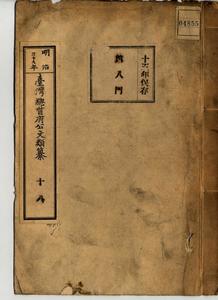 04855
十五年保存
第八門
明治
三十九年
臺灣總督府公文類纂
十八